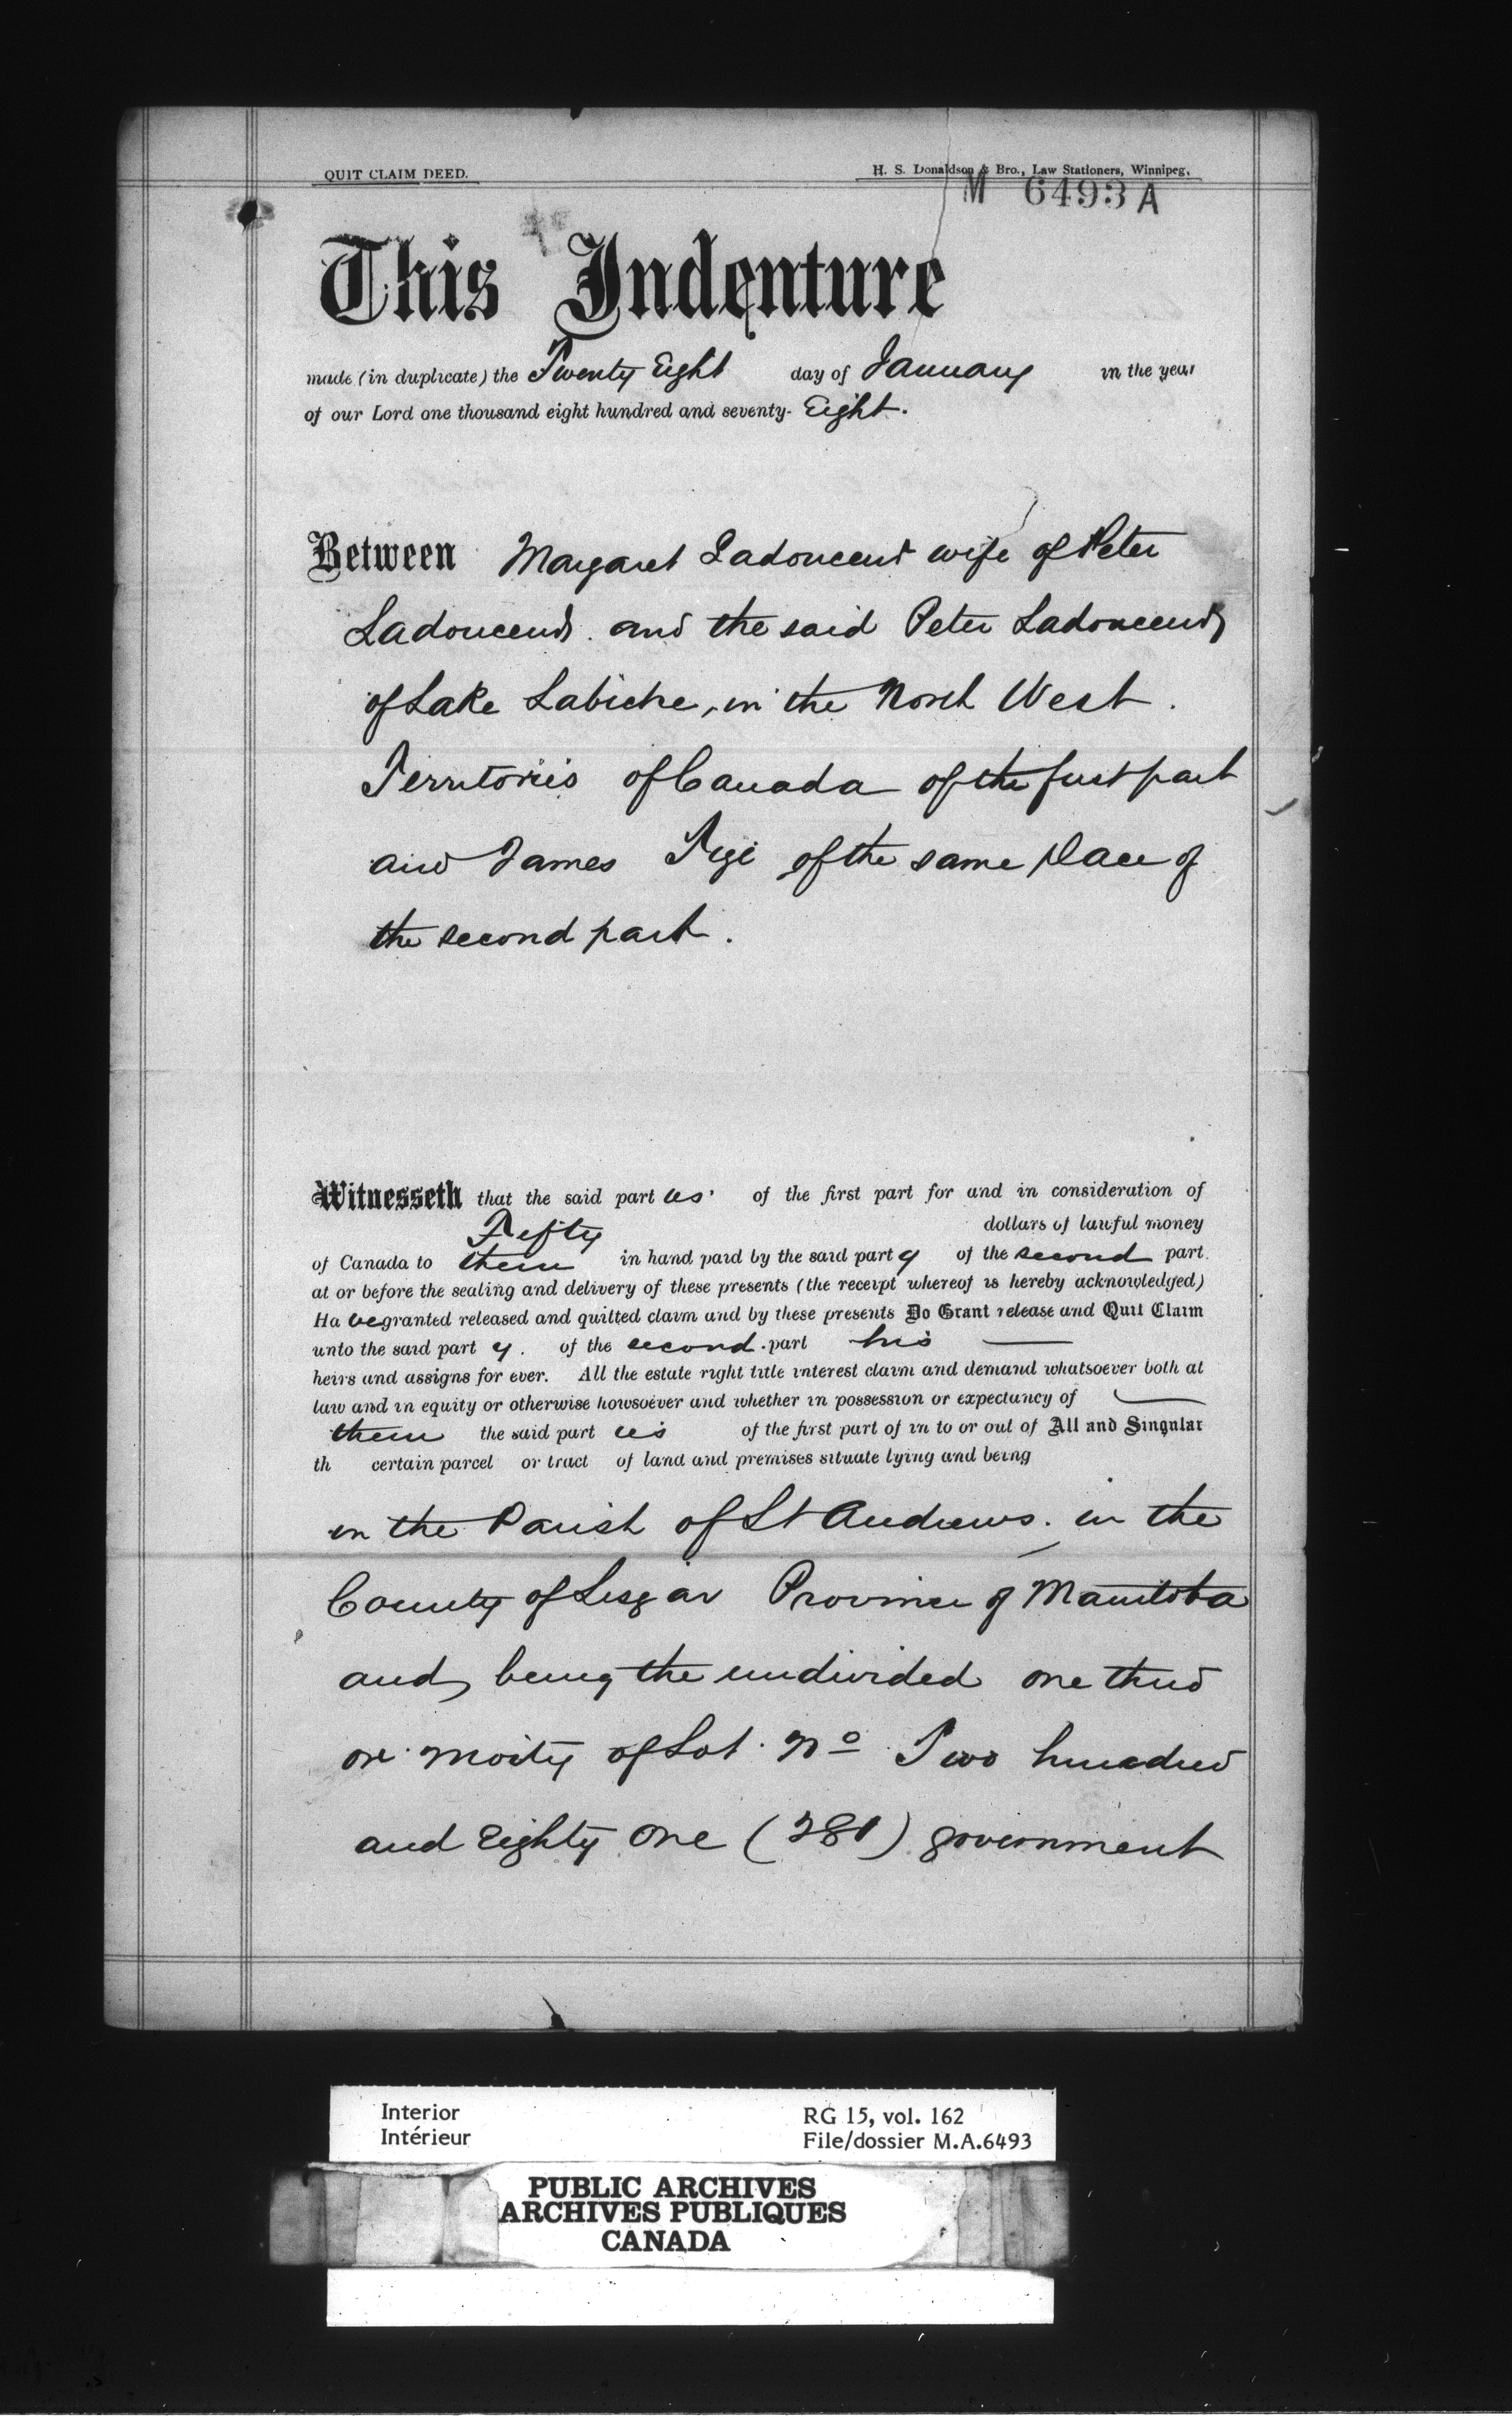 QUIT CLAIM DEED.
H. S. Donaldson & Bro., Law Stationers, Winnipeg,
M 6493 A
This Indenture
made (in duplicate) the Twenty Eight day of January in the year
of our Lord one thousand eight hundred and seventy- Eight.
Between Margaret Ladouceur wife of Peter
Ladouceur. and the said Peter Ladouceur
of Lake Labiche, in the North West.
Territories of Canada of the first part
and James of the same place of
the second part.
Witnesseth that the said part ies of the first part for and in consideration of
Fifty dollars of lawful money
of Canada to them in hand paid by the said part y of the second part.
at or before the sealing and delivery of these presents (the receipt whereof is hereby acknowledged)
Ha ve granted released and quitted claim and by these presents Do Grant release and Quit Claim
unto the said part y. of the second. part his
heirs and assigns for ever. All the estate right title interest claim and demand whatsoever both at
law and in equity or otherwise howsoever and whether in possession or expectancy of
them the said part ies of the first part of in to or out of All and Singular
th certain parcel or tract of land and premises situate lying and being
in the Parish of St Andrews. in the
County of Lisgar Province of Manitoba
and being the undivided one third
or moity of Lot. No Two hundred
and Eighty One (281) government
Interior
Intérieur
RG 15, vol. 162
File/dossier M.A.6493
PUBLIC ARCHIVES
ARCHIVES PUBLIQUES
CANADA